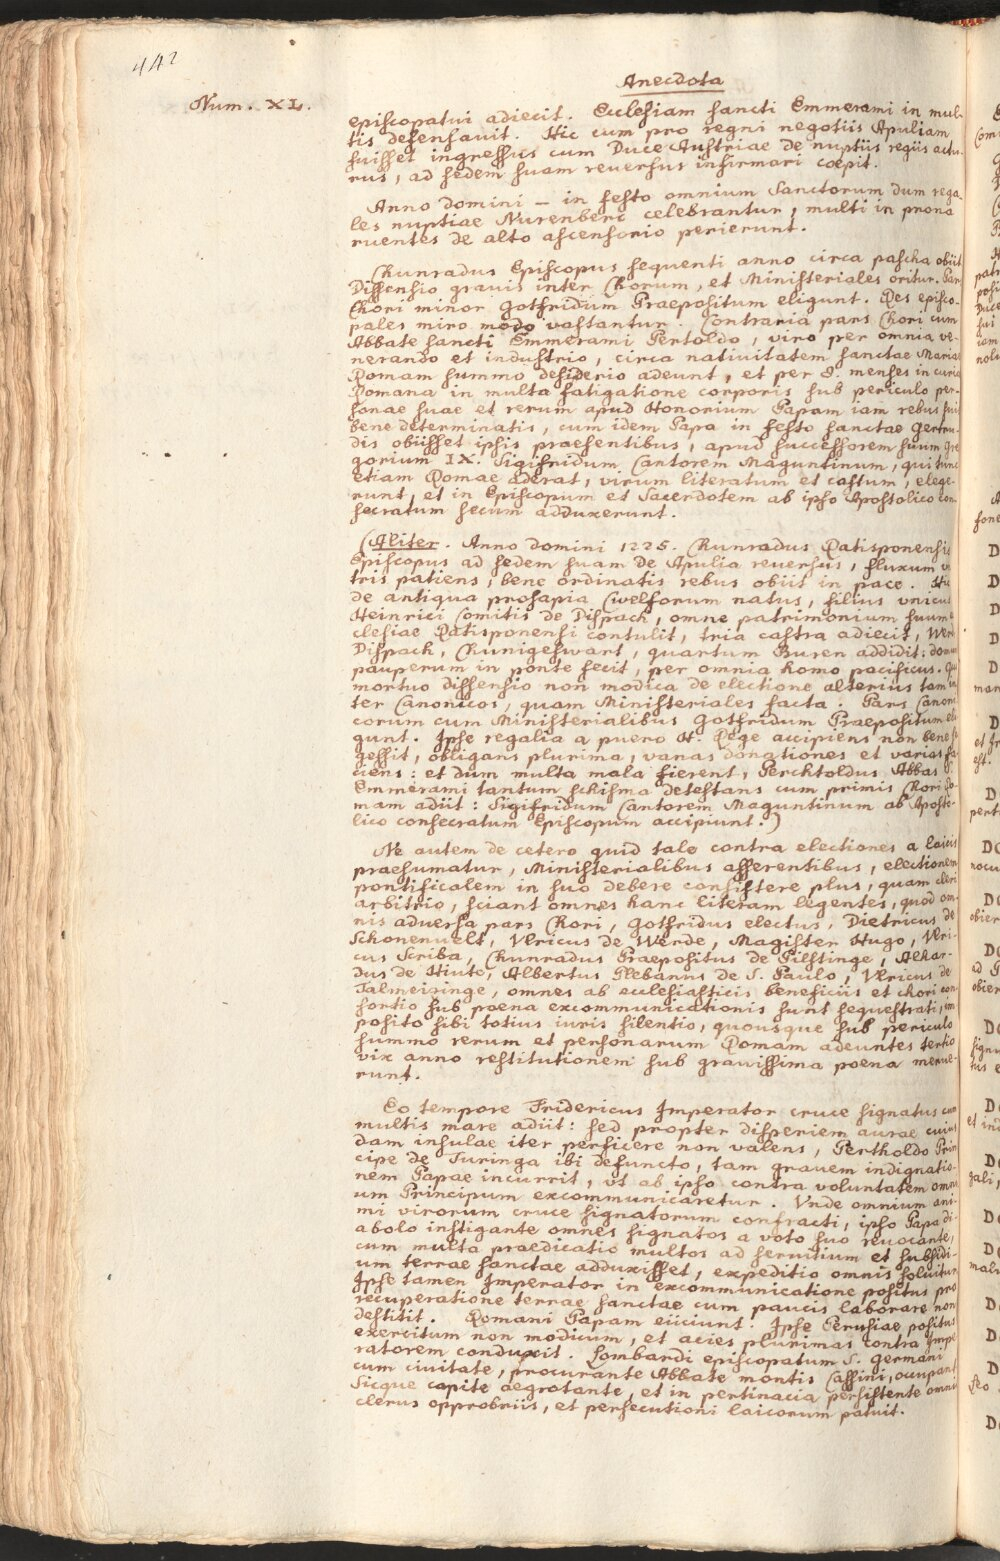 442
Anecdota
Num. XL.
episcopatui adiecit. Ecclesiam sancti Emmerami in mul-
tis defensauit. Hic cum pro regni negotiis Apuliam
fuisset ingressus cum Duce Austriae de nuptiis regiis actu-
rus, ad sedem suam reuersus infirmari coepit.
Anno domini — in festo omnium Sanctorum dum rega-
les nuptiae Nurenberc celebrantur, multi in prona
ruentes de alto ascensorio perierunt.
Chunradus Episcopus sequenti anno circa pascha obiit
Dissensio grauis inter Chorum, et Ministeriales oritur. Pars
Chori minor Gotfridum Praepositum eligunt. Res episco-
pales miro modo vastantur. Contraria pars Chori cum
Abbate sancti Emmerami Pertoldo, viro per omnia ve-
nerando et industrio, circa natiuitatem sanctae Mariae
Romam summo desiderio adeunt, et per 8. menses in curia
Romana in multa fatigatione corporis sub periculo per-
sonae suae et rerum apud Honorium Papam iam rebus sui
bene determinatis, cum idem Papa in festo sanctae Gertru-
dis obiisset ipsis praesentibus, apud successorem suum Gre
gorium IX. Sigifridum Cantorem Maguntinum, qui tunc
etiam Romae aderat, virum literatum et castum, elege-
runt, et in Episcopum et Sacerdotem ab ipso Apostolico con-
secratum secum adduxerunt.
(Aliter. Anno domini 1225. Chunradus Ratisponensis
Episcopus ad sedem suam de Apulia reuersus, fluxum v
tris patiens, bene ordinatis rebus obiit in pace. Hic
de antiqua prosapia Cwelforum natus, filius vnicus
Heinrici Comitis de Dispach, omne patrimonium suum
clesiae Ratisponensi contulit, tria castra adiecit, Werd
Dispach, Chunigeswart, quartum Buren addidit: domum
pauperum in ponte fecit, per omnia homo pacificus. Quo
mortuo dissensio non modica de electione alterius tam in
ter Canonicos, quam Ministeriales facta. Pars Canoni
corum cum Ministerialibus Gotfridum Praepositum eli
gunt. Ipse regalia a puero H. Rege accipiens non bene se
gessit, obligans plurima, varias donationes et varias fa
ciens: et dum multa mala fierent, Perchtoldus Abbas S.
Emmerami tantum schisma detestans cum primis Chori Ro-
mam adiit: Sigifridum Cantorem Maguntinum ab Aposto-
lico consecratum Episcopum accipiunt.)
Ne autem de cetero quid tale contra electiones a laicis
praesumatur, Ministerialibus asserentibus, electionem
pontificalem in suo debere consistere plus, quam cleri
arbitrio, sciant omnes hanc literam legentes, quod om-
nis aduersa pars Chori, Gotfridus electus, Dietricus de
Schonenuelt, Vlricus de Werde, Magister Hugo, Vlri-
cus Scriba, Chunradus Praepositus de Pilstinge, Alhar-
dus de Hiute, Albertus Plebanus de S. Paulo, Vlricus de
Talmeizinge, omnes ab ecclesiasticis beneficiis et chori con-
sortio sub poena excommunicationis sunt sequestrati, im
posito sibi totius iuris silentio, quousque sub periculo
summo rerum et personarum Romam adeuntes tertio
vix anno restitutionem sub grauissima poena merue-
runt.
Eo tempore Fridericus Imperator cruce signatus cum
multis mare adiit: sed propter disperiem aurae cuius
dam insulae iter perficere non valens, Pertholdo Prin
cipe de Turinga ibi defuncto, tam grauem indignatio-
nem Papae incurrit, vt ab ipso contra voluntatem omni
um Principum excommunicaretur. Vnde omnium ani-
mi virorum cruce signatorum confracti, ipso Papa di-
abolo instigante omnes signatos a voto suo reuocante,
cum multa praedicatio multos ad seruitium et subsidi-
um terrae sanctae adduxisset, expeditio omnis soluitur
Ipse tamen Imperator in excommunicatione positus pro
recuperatione terrae sanctae cum paucis laborare non
destitit. Romani Papam eiiciunt. Ipse Perusiae positus
exercitum non modicum, et acies plurimas contra Impe
ratorem conduxit. Lombardi episcopatum S. Germani
cum ciuitate, procurante Abbate montis Cassini, occupant
Sicque capite aegrotante, et in pertinacia persistente omnis
clerus opprobriis, et persecutioni laicorum patuit.